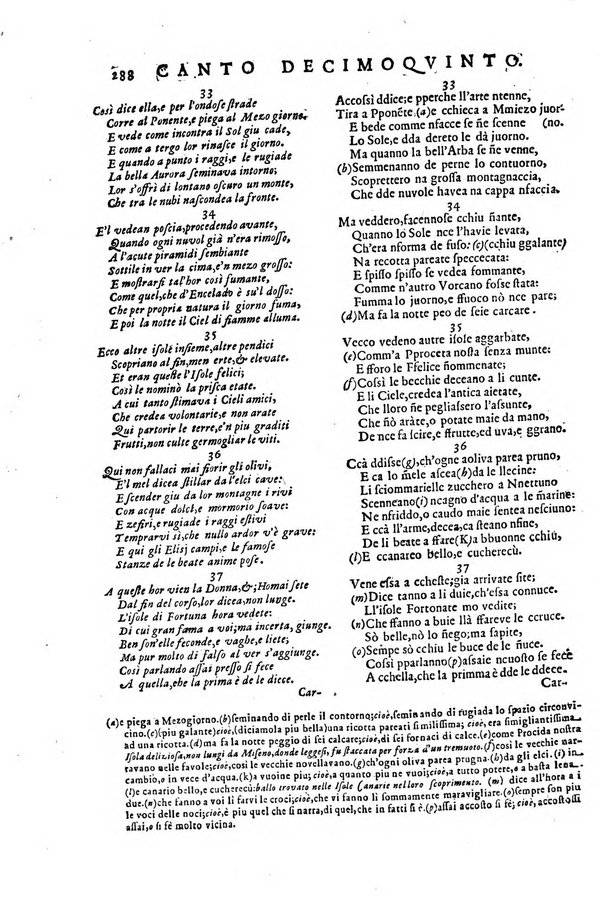 288 CANTO DECIMOQVINTO.
33
Così dice ella, e per l'ondose strade
Corre al Ponente, e piega al Mezo giorno.
E vede come incontra il Sol giu cade,
E come a tergo lor rinasce il giorno.
E quando a punto i raggi, e le rugiade
La bella Aurora seminava intorno;
Lor s'offrì di lontano oscuro un monte,
Che tra le nubi nascondea la fronte.
34
E'l vedean poscia, procedendo avante,
Quando ogni nuvol già n'era rimosso,
A l'acute piramidi sembiante
Sottile in ver la cima, e'n mezo grosso:
E mostrarsi tal'hor così fumante,
Come quel, che d'Encelado è su'l dosso:
Che per propria natura il giorno fuma,
E poi la notte il Ciel di fiamme alluma.
35
Ecco altre isole insieme, altre pendici
Scopriano al fin, men erte, & elevate.
Et eran queste l'Isole felici;
Così le nominò la prisca etate.
A cui tanto stimava i Cieli amici,
Che credea volontarie, e non arate
Qui partorir le terre, e'n piu graditi
Frutti, non culte germogliar le viti.
36
Qui non fallaci mai fiorir gli olivi,
E'l mel dicea stillar da l'elci cave:
E scender giu da lor montagne i rivi
Con acque dolci, e mormorio soave:
E zefiri, e rugiade i raggi estivi
Temprarvi sì, che nullo ardor v'è grave:
E qui gli Elisj campi, e le famose
Stanze de le beate anime pose.
37
A queste hor vien la Donna, &; Homai sete
Dal fin del corso, lor dicea, non lunge.
L'isole di Fortuna hora vedete:
Di cui gran fama a voi; ma incerta, giunge.
Ben son'elle feconde, e vaghe, e liete;
Ma pur molto di falso al ver s'aggiunge.
Così parlando assai presso si fece
A quella, che la prima è de le diece.
Car-
33
Accossì ddice; e pperche ll'arte ntenne,
Tira a Pponẽte, (a)e cchieca a Mmiezo juor-
E bede comme nfacce se ñe scenne (no.
Lo Sole, e dda dereto le dà juorno.
Ma quanno la bell'Arba se ñe venne,
(b)Semmenanno de perne lo contuorno,
Scoprettero na grossa montagnaccia,
Che dde nuvole havea na cappa nfaccia.
34
Ma veddero, facennose cchiu ñante,
Quanno lo Sole nce l'havie levata,
Ch'era nforma de fuso: (c)(cchiu ggalante)
Na recotta pareate speccecata:
E spisso spisso se vedea fommante,
Comme n'autro Vorcano fosse stata:
Fumma lo juorno, e ffuoco nò nce pare;
(d)Ma fa la notte peo de seie carcare.
35
Vecco vedeno autre isole aggarbate,
(e)Comm'a Pproceta nosta senza munte:
E fforo le Ffelice ñommenate;
(f)Cossì le becchie deceano a li cunte.
E li Ciele, credea l'antica aietate,
Che lloro ñe pegliassero l'assunte,
Che ñò aràte, o potate maie da mano,
De nce fa scire, e ffrutte, ed uva, e ggrano.
36
Ccà ddisse(g), ch'ogne aoliva parea pruno,
E ca lo mele ascea(h)da le llecine:
Li sciommarielle zucchero a Nnettuno
Scenneano(i)ncagno d'acqua a le marine:
Ne nfriddo, o caudo maie sentea nesciuno:
E ccà ll'arme, decea, ca steano nfine,
De li beate a ffare(K)a bbuonne cchiù,
(l)E ccanareo bello, e cucherecù.
37
Vene essa a cchesте; già arrivate site;
(m)Dice tanno a li duie, ch'essa connuce.
Ll'isole Fortonate mo vedite;
(n)Che ffanno a buie llà ffareve le ccruce.
Sò belle, nò lo ñego; ma sapite,
(o)Sempe sò cchiu le buce de le ñuce.
Cossì pparlanno(p)assaie ncuosto se fece
A cchella, che la primma è dde le ddece.
Car-
(a)e piega a Mezogiorno. (b)seminando di perle il contorno; cioè, seminando di rugiada lo spazio circonvi-
cino. (c)(piu galante) cioè, (diciamola piu bella) una ricotta pareati similissima; cioè, era simigliantissima
ad una ricotta. (d)ma fa la notte peggio di sei calcare; cioè, di sei fornaci di calce. (e)come Procida nostra
Isola deliziosa, non lungi da Miseno, donde leggesi, fu staccata per forza d'un tremuoto. (f)così le vecchie nar-
ravano nelle favole; cioè, così le vecchie novellavano. (g)ch'ogni oliva parea prugna. (h)da gli elci. (i)in
cambio, o in vece d'acqua. (k)a vuoine piu; cioè, a quanto piu ne vuoi; cioè, a tutto potere, o a basta lena.
(l)e canario bello, e cucherecù: ballo trovato nelle Isole Canarie nel loro scoprimento. (m) dice all'hora a i
due. (n)che fanno a voi lì farvi le croci; cioè, che vi fanno lì sommamente maravigliare. (o)sempre son piu
le voci delle noci; cioè, è piu quel che si narra, di quel, che in fatti si è. (p)assai accosto si fè; cioè, accostossi
assai, o si fè molto vicina.